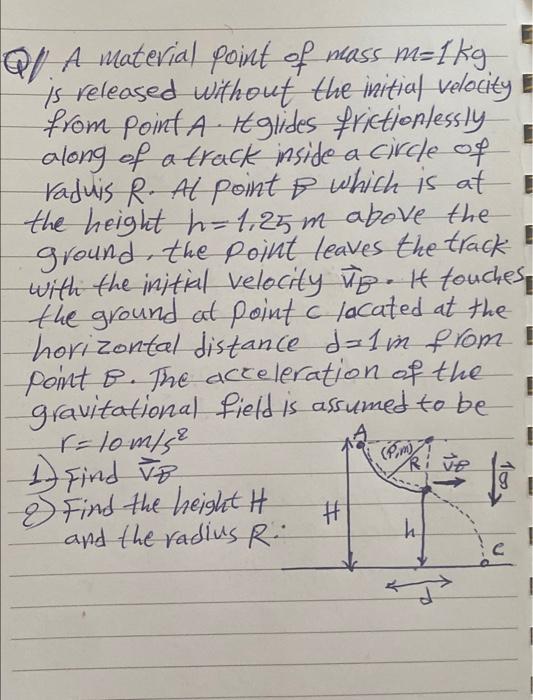 Q1/ A material point of mass m=1kg
is released without the initial velocity
from point A. It glides frictionlessly
along of a track inside a circle of
raduis R. At point B which is at
the height h=1.25 m above the
ground, the point leaves the track
with the initial velocity V⃗B. It touches
the ground at point c lacated at the
horizontal distance d=1m from
point B. The acceleration of the
gravitational field is assumed to be
r=10m/s²
1) Find V⃗B
2) Find the height H
and the radius R.
A
(P,m)
R
V⃗B
g⃗
H
h
c
d